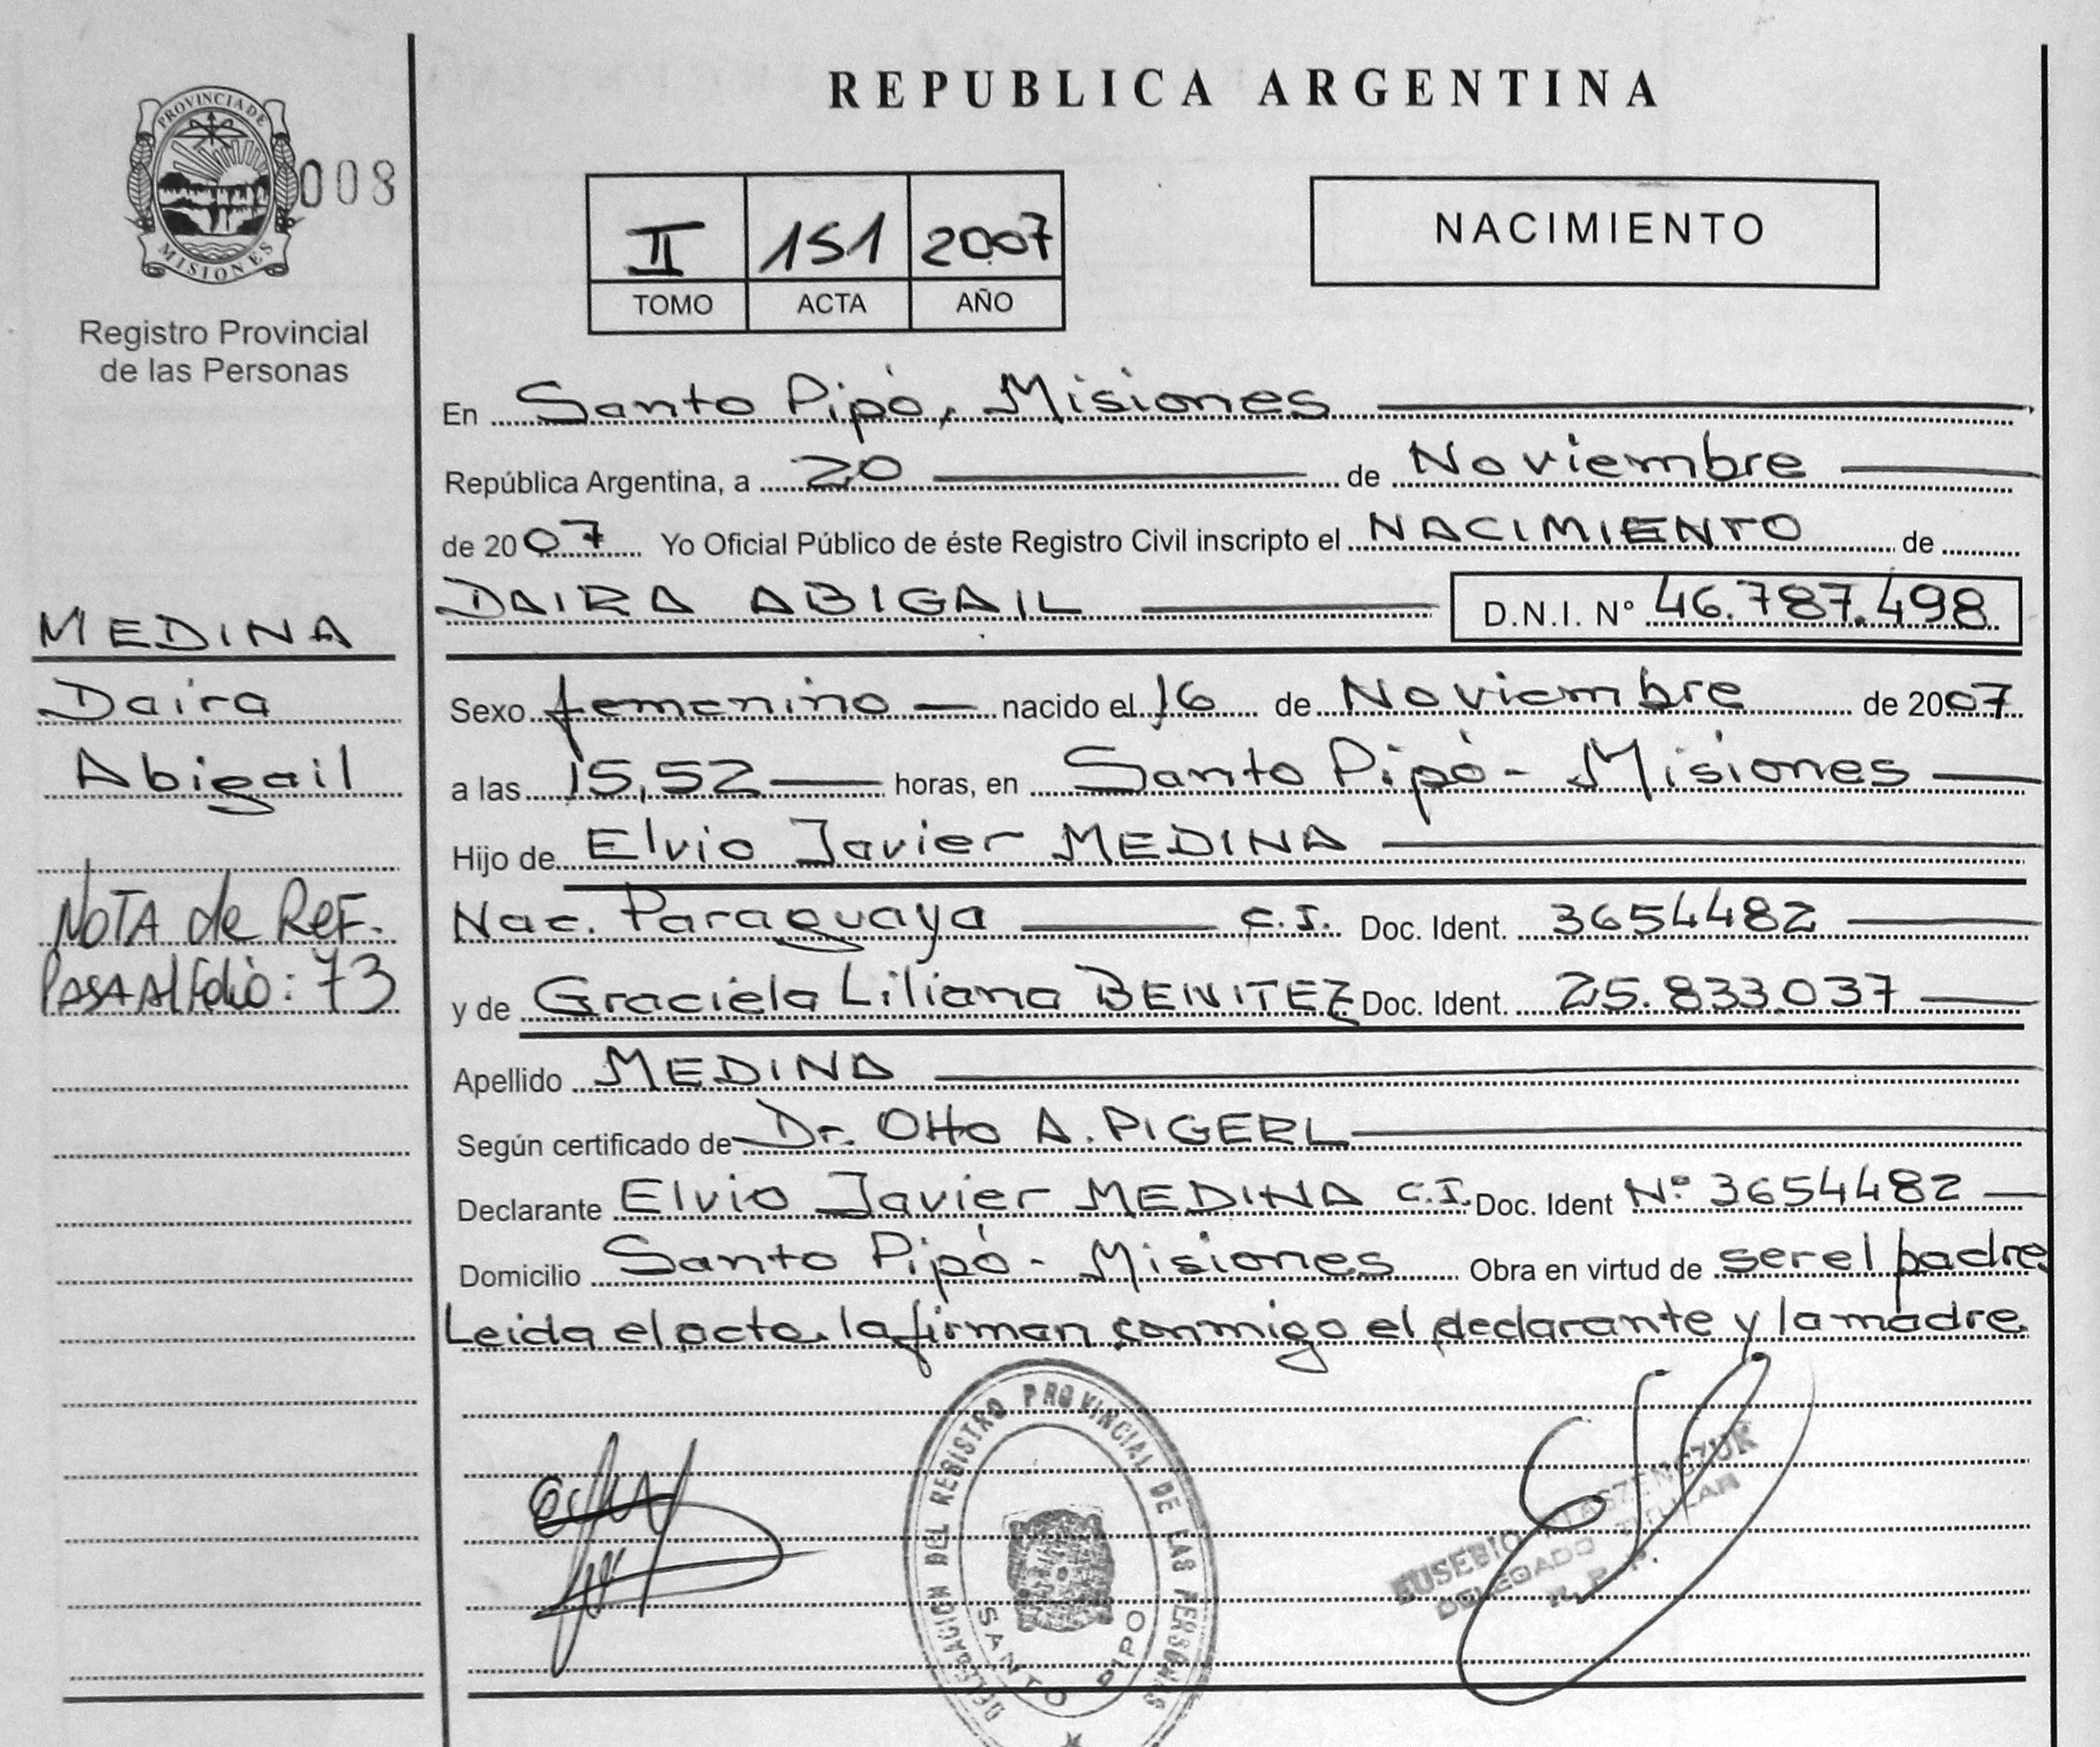 REPUBLICA ARGENTINA
PROVINCIA DE
MISIONES
008
Registro Provincial
de las Personas
II 151 2007
TOMO ACTA AÑO
NACIMIENTO
En Santo Pipó, Misiones
República Argentina, a 20 de Noviembre
de 2007 Yo Oficial Público de éste Registro Civil inscripto el NACIMIENTO de
DAIRA ABIGAIL D.N.I. N° 46.787.498
MEDINA
Daira
Abigail
NOTA de REF.
PASA Al Folio: 73
Sexo femenino nacido el 16 de Noviembre de 2007
a las 15,52 horas, en Santo Pipó - Misiones
Hijo de Elvio Javier MEDINA
Nac. Paraguaya C.I. Doc. Ident. 3654482
y de Graciela Liliana BENITEZ Doc. Ident. 25.833.037
Apellido MEDINA
Según certificado de Dr. Otto A. PIGERL
Declarante Elvio Javier MEDINA C.I. Doc. Ident N° 3654482
Domicilio Santo Pipó - Misiones Obra en virtud de ser el padre
Leida el acta, la firman conmigo el declarante y la madre
DELEGACION DEL REGISTRO PROVINCIAL DE LAS PERSONAS
SANTO PIPO
EUSEBIO
DELEGADO TITULAR
R. P. P.